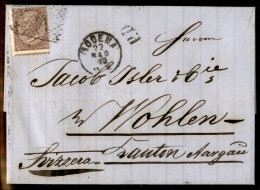 MODENA
22
MAG
P.D.
Herrn
Jacob Isler & Cie
in Wohlen
Svizzera Canton Aargau